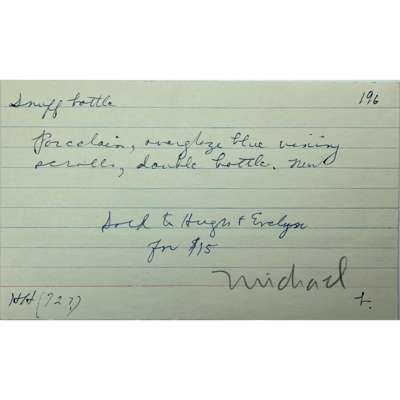 Snuff bottle 196
Porcelain, overglaze blue vining
scrolls, double bottle. New
Sold to Hugh & Evelyn
for $15
Michael
HH (723) t.